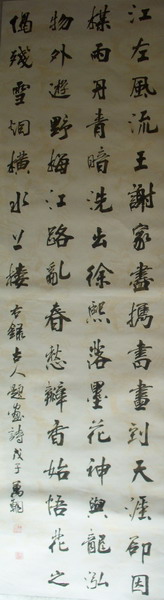 江左風流王謝家盡攜書畫到天涯卻因
楳雨丹青暗洗出徐熙落墨花神與龍泓
物外遊野梅江路亂春愁瓣香始悟花之
偈殘雪烟橫水上樓 右錄古人題畫詩戊子